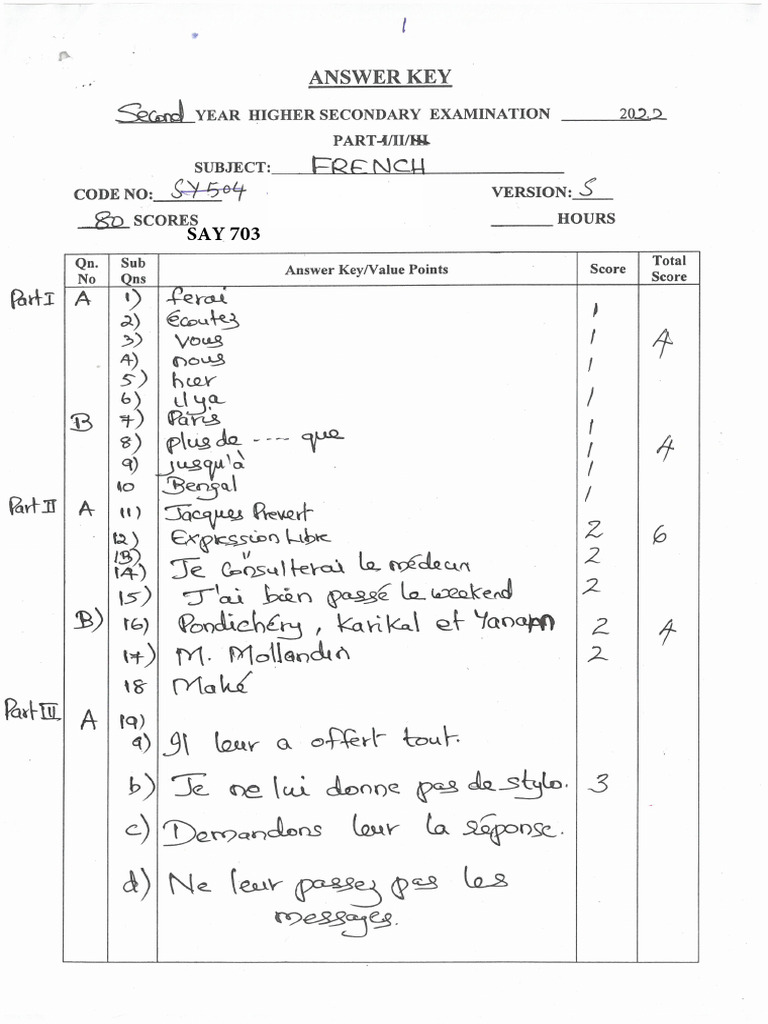 1
ANSWER KEY
Second YEAR HIGHER SECONDARY EXAMINATION 2022
PART-I/II/III
SUBJECT: FRENCH
CODE NO: SY504 VERSION: S
80 SCORES HOURS
SAY 703
Qn. No Sub Qns Answer Key/Value Points Score Total Score
Part I A 1) ferai 1
2) écoutez
3) vous 1 4
4) nous 1
5) hier
6) il ya 1
B 7) Paris 1
8) plus de ---- que 1 4
9) jusqu'à 1
10 Bengal 1
Part II A 11) Jacques Prevert
12) Expression Libre 2 6
13) " 2
14) Je consulterai le médecin
15) J'ai bien passé le weekend 2
B) 16) Pondichéry, Karikal et Yanam 2 4
17) M. Mollandin 2
18 Mahé
Part III A 19)
a) Il leur a offert tout.
b) Je ne lui donne pas de stylo. 3
c) Demandons leur la réponse.
d) Ne leur passez pas les
messages.